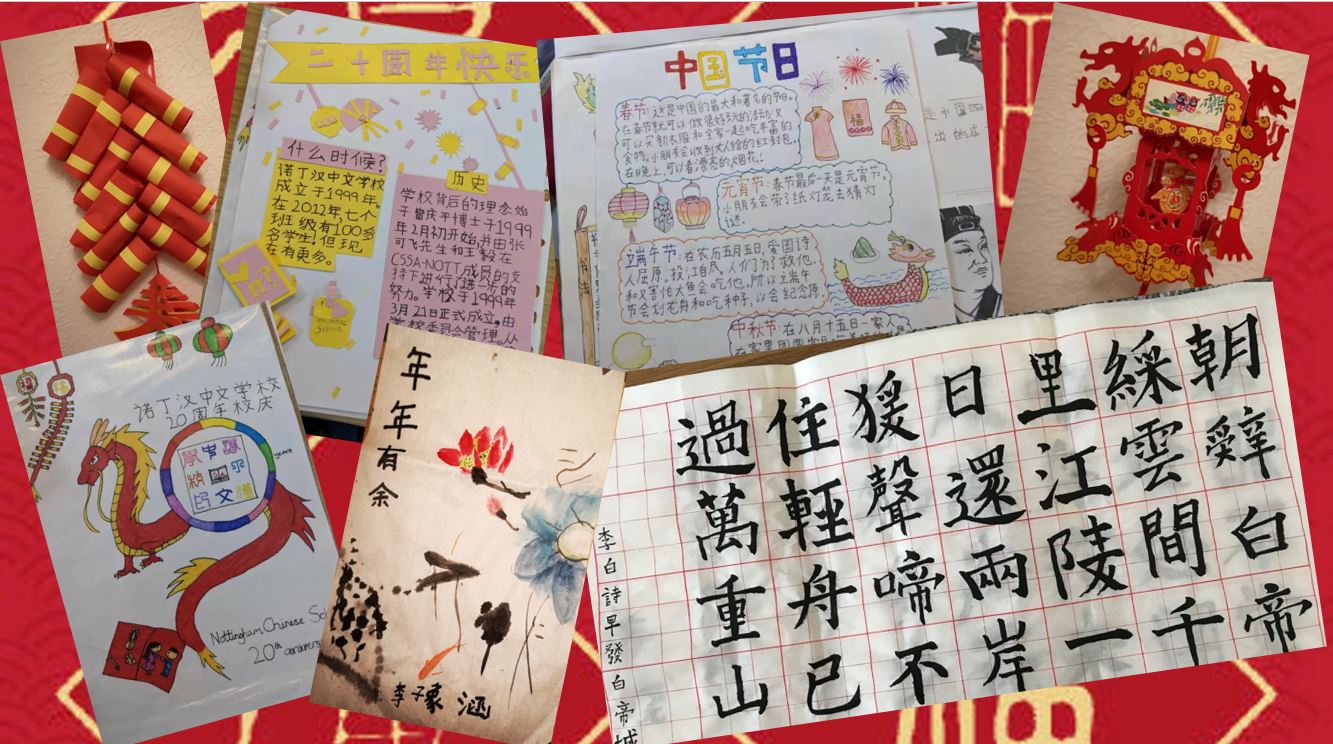 二十周年快乐
什么时候?
诺丁汉中文学校
成立于1999年。
在2012年,七个
班级有100多
名学生!但现
在有更多。
历史
学校背后的理念始
于曾庆平博士于1999
年2月初开始,并由张
可飞先生和王毅在
CSSA-NOTT成员的支
持下进行了进一步的
努力。学校于1999年
3月21日正式成立,由
学校委员会管理。从
中国节日
春节:这是中国的最大和著名的节日。
在春节就可以做很好玩的活动又
可以买新衣服和全家一起吃丰富的
食物。小朋友会收到大人给的红封包。
在晚上,可以看漂亮的烟花!
福
元宵节:春节最后一天是元宵节。
小朋友会带了纸灯笼去猜灯
谜。
端午节:在农历五月五日,爱国诗
人屈原,投江自尽。人们为了救他,
和又害怕大鱼会吃他,所以端午
节会划龙舟和吃种子,以会纪念原
中秋节:在八月十五日一家人
诺丁汉中文学校
20周年校庆
years
Nottingham Chinese Sc
20th anniversa
年年有余
李子豪涵
朝辭白帝
綵雲間千
里江陵一
日還兩岸
猨聲啼不
住輕舟已
過萬重山
李白詩早發白帝城